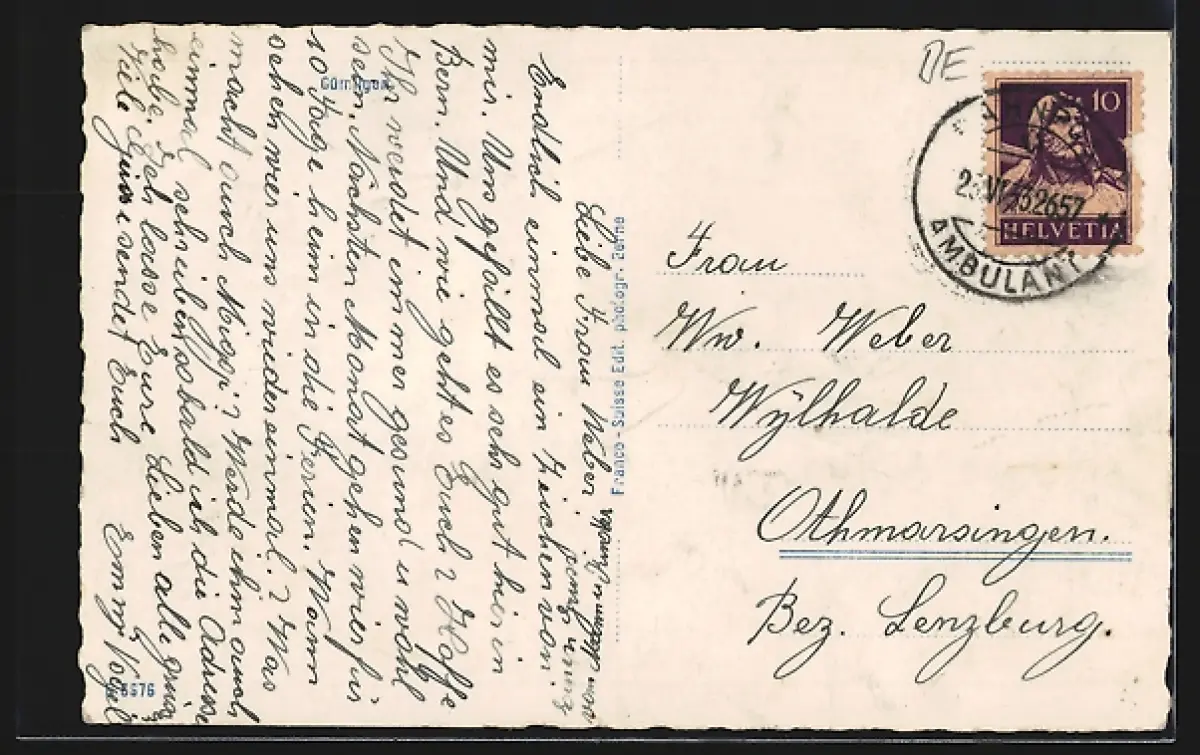 Liebe Frau Weber
Endlich einmal ein Zeichen von
mir. Uns gefällt es sehr gut hier in
Bern. Und wie geht es Euch? Hoffe
Ihr werdet immer gesund u wohl
sein. Nächsten Monat gehen wir für
10 Tage heim in die Ferien. Wann
sehen wir uns wieder einmal? Was
macht auch Miggi? Werde ihm auch
einmal schreiben, sobald ich die Adresse
habe. Ich lasse Eure Lieben alle
Viele Grüsse sendet Euch
Emmy Vogel
6576
Gümligen
Franco-Suisse Edit. photogr. Berne
DE
10
HELVETIA
2657
AMBULANT
Frau
Ww. Weber
Wylhalde
Othmarsingen.
Bez. Lenzburg.